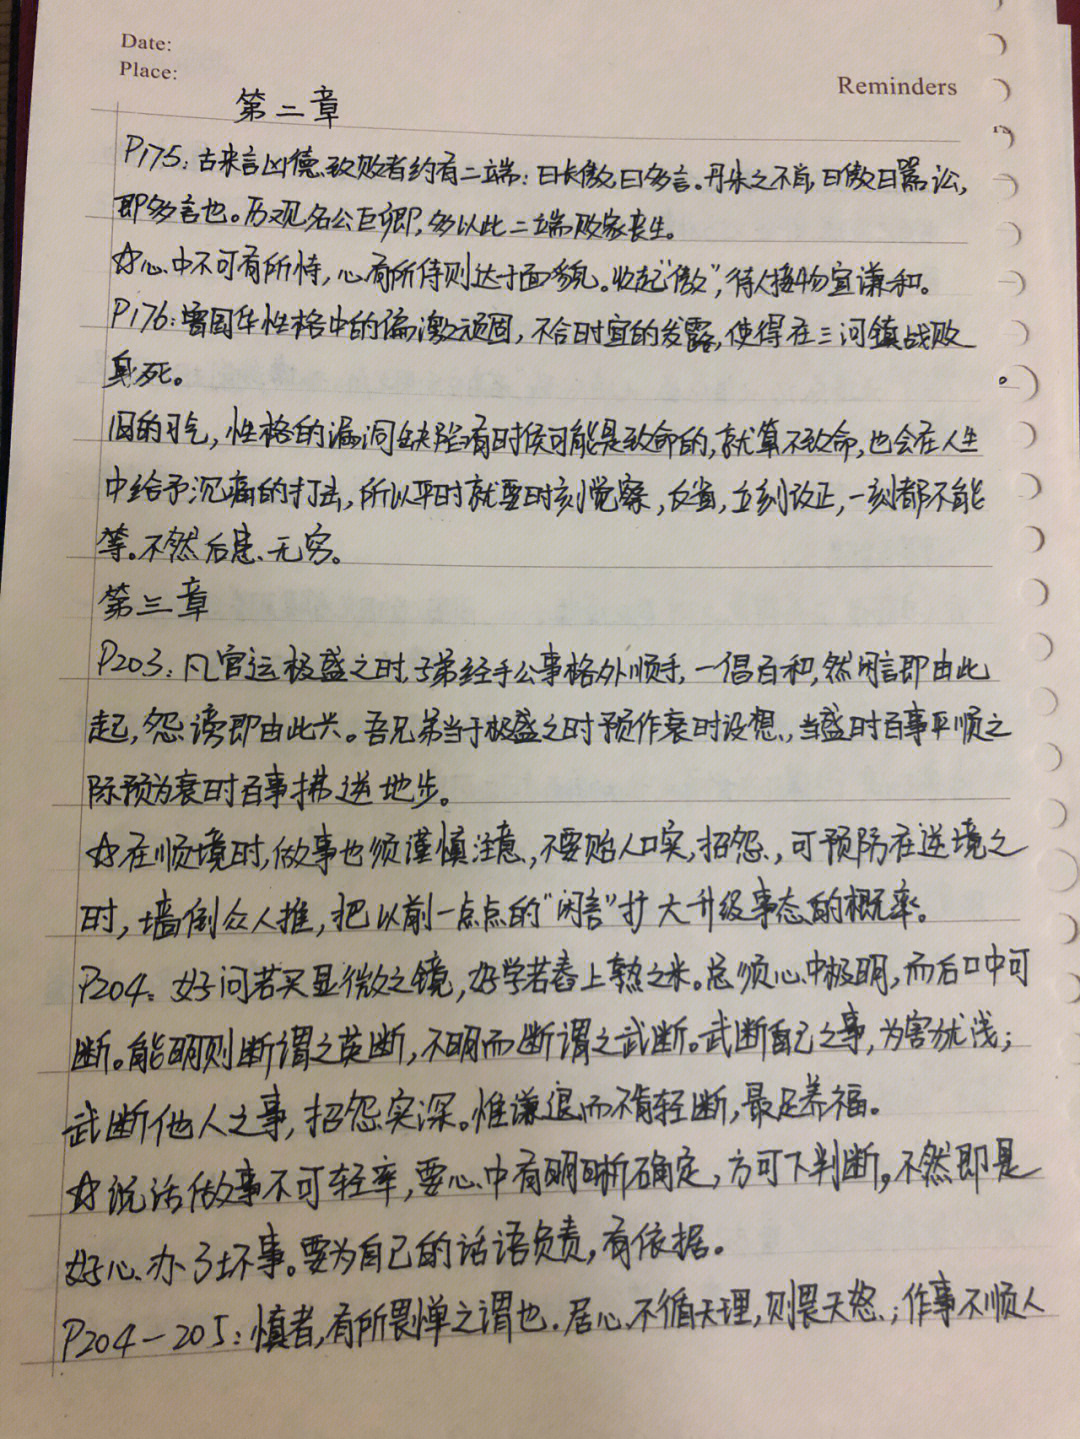 Date:
Place:
Reminders
第二章
P175：古来言凶德致败者约有二端：曰长傲，曰多言。丹朱之不肖，曰傲曰嚚讼，
即多言也。历观名公巨卿，多以此二端败家丧生。
☆心中不可有所恃，心有所恃则达于面貌。收起“傲”，待人接物宜谦和。
P176：曾国华性格中的偏激顽固，不合时宜的发露，使得在三河镇战败
身死。
旧的习气，性格的漏洞缺陷有时候可能是致命的，就算不致命，也会在人生
中给予沉痛的打击，所以平时就要时刻觉察，反省，立刻改正，一刻都不能
等。不然后患无穷。
第三章
P203：凡官运极盛之时，子弟经手公事格外顺手，一倡百和，然闲言即由此
起，怨谤即由此兴。吾兄弟当于极盛之时预作衰时设想，当盛时百事平顺之
际预为衰时百事拂逆地步。
☆在顺境时，做事也须谨慎注意，不要贻人口实，招怨，可预防在逆境之
时，墙倒众人推，把以前一点点的“闲言”扩大升级事态的概率。
P204：好问若买显微之镜，好学若舂上熟之米。总须心中极明，而后口中可
断。能明则断谓之英断，不明而断谓之武断。武断自己之事，为害犹浅；
武断他人之事，招怨实深。惟谦退而不肯轻断，最足养福。
☆说话做事不可轻率，要心中有明晰确定，方可下判断，不然即是
好心办了坏事。要为自己的话语负责，有依据。
P204-205：慎者，有所畏惮之谓也．居心不循天理，则畏天怒；作事不顺人